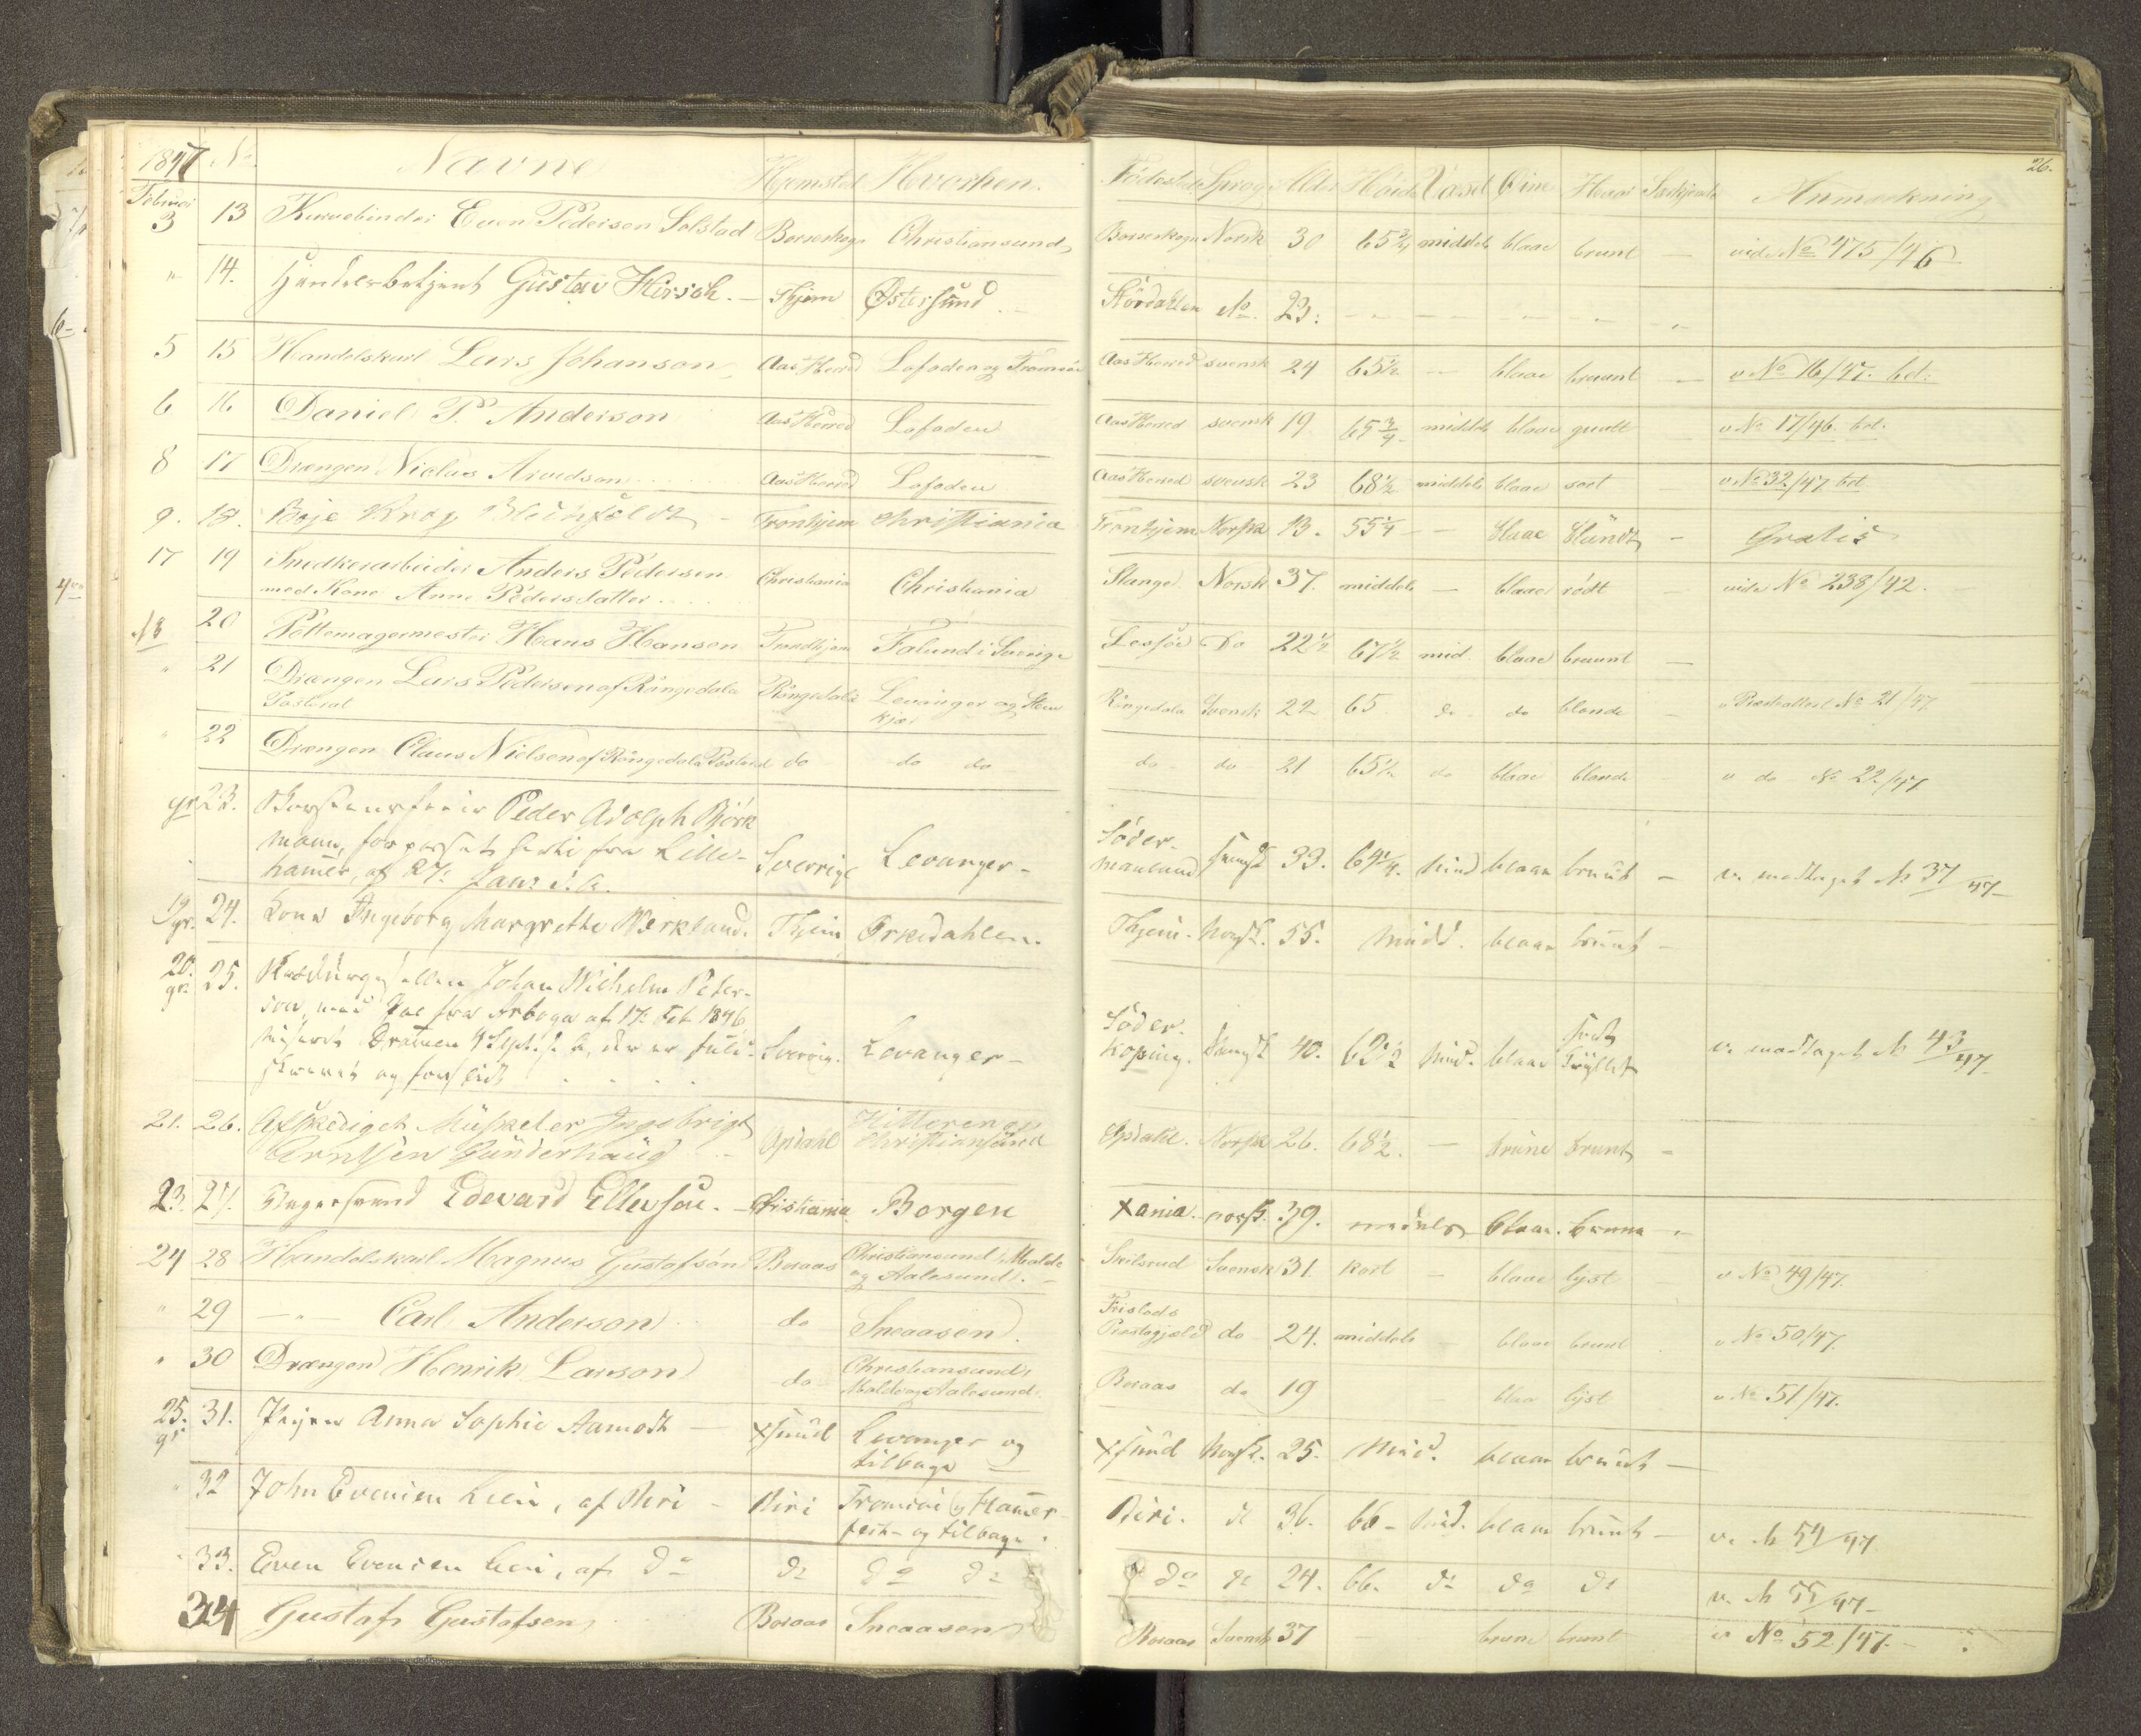 1847 No Navne Hjemsted Hvorhen. Födested Sprog Alder Höide Væxt Öine Haar Særkjende Anmærkning 26.
Februar
3 13 Kurvebinder Even Pedersen Solstad Børseskogn Christiansund Børseskogn Norsk 30 65 3/4 middels blaae brunt — vide No 475/46
" 14. Handelsbetjent Gustav Hirsch. — Thjem Østersund. Stördahlen No. 23.
5 15 Handelskarl Lars Johanson Aas Herred Lofoden og Tromsöe Aas Herred svensk 24 65 1/2 — blaae bruunt — v No 16/47. bet:
6 16 Daniel P. Anderson Aas Herred Lofoden Aas Herred svensk 19 65 3/4 middels blaae guult v No 17/46. bet.
8 17 Drængen Niclas Arvedson Aas Herred Lofoden Aas Herred svensk 23 68 1/2 middels blaae sort v No 32/47 bet
9. 18. Boje Krog Tronhjem Christiania Tronhjem Norsk 13. 55 1/4 — blaae blündt — Gratis
17 19 Snedkerarbeider Anders Pedersen Christiania Christiania Stange Norsk 37. middels — blaae rödt — vide No 238/42.
med Kone Anne Pedersdatter
18 20 Pottemagermester Hans Hansen Trondhjem Falund i Sverige Lesjöe Do 22 1/2 67 1/2 mid. blaae bruunt —
" 21 Drængen Lars Pedersen af Rångedala Rångedala Levanger og Sten Rångedala Svensk 22 65 do do blonde — v Præsteattest No 21/47
Pastorat kjær
" 22 Drængen Claus Nielsen af Rångedala Pastorat do do do do do 21 65 1/2 do blaae blonde v do No 22/47
gr 23. Peder Adolph Björk
mann, fra Lille-
hamer, af 27. Janr d. A. Sverrige Levanger — Söder-
manland svensk 33. 64 1/4. mid blaae bruunt — v. modtaget No 37/47 —
19 gr. 24. Kona Ingeborg Margrethe Werkland. Thjem Orkedahlen. Thjem. norsk. 55. midd. blaae bruunt —
20. gr. 25. Johan Wilhelm Peter-
son, med Pas fra Arboga af 17. Feb 1846
Dratnen 4 Sept. s. A, der er
og Sverrig. Levanger — Söder-
köping. svensk 40. 62 1/2 mid. blaae v. modtaget No 43/47
21. 26. Afskediget Müsketer Ingebrigt Opdahl Hitteren og Opdahl. Norsk 26. 68 1/2. — brune brunt —
Arntsen Günderhaug Christiansund
23. 27. Edevard Ellevsen. — Christiania. Bergen Xania. norsk. 39. middels blaae. brune —
24 28 Handelskarl Magnus Gustafson Boraas Christiansund, Molde Svensk 31. kort — blaae lyst — v No 49/47.
og Aalesund. —
" 29 — " — Carl Anderson do Snaasen. Fristads
Præstegjæld do 24. middels — blaae brunt v No 50/47.
" 30 Drængen Henrik Larson do Christiansund, Boraas do 19 — blaa lyst v No 51/47.
Molde og Aalesund.
25. gr 31. Pigen Anna Sophie Aamodt — Xsund Levanger og Xsund norsk. 25. mid. blaae bruunt —
tilbage —
" 32 John Evensen Lien, af Biri — Biri Tromsöe og Hamer- Biri. do 36. 66 — mid. blaae bruunt — v. No 54/47.
fest — og tilbage.
" 33. Even Evensen Lien, af do do do do do do 24. 66. do do do v. No 55/47 —
34 Gustaf Gustafsen Boraas Snaasen Boraas Svensk 37 — brune brunt v No 52/47. —